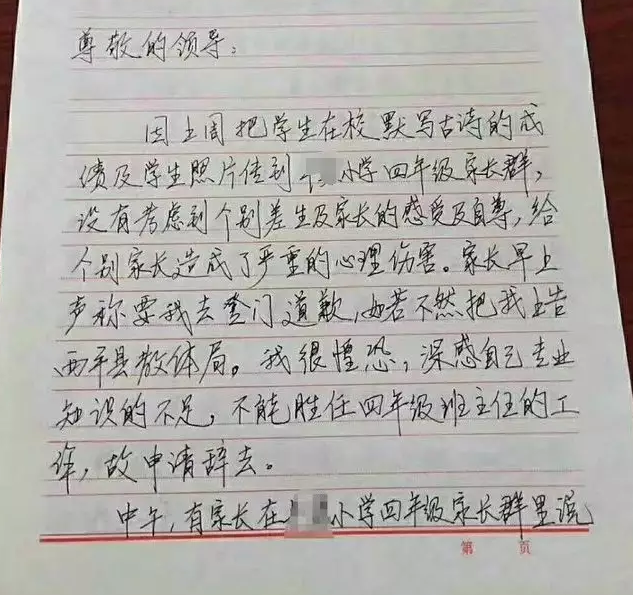 尊敬的领导：
因上周把学生在校默写古诗的成
绩及学生照片传到 小学四年级家长群，
没有考虑到个别差生及家长的感受及自尊，给
个别家长造成了严重的心理伤害。家长早上
声称要我去登门道歉，如若不然把我上告
西平县教体局。我很惶恐，深感自己专业
知识的不足，不能胜任四年级班主任的工
作，故申请辞去。
中午，有家长在 小学四年级家长群里说
第 页